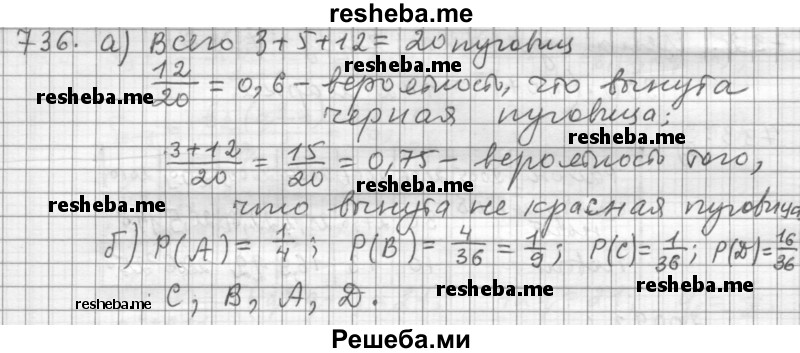 resheba.me
736. а) Всего 3+5+12 = 20 пуговиц
resheba.me
12/20 = 0,6 - вероятность, что вынута
resheba.me
черная пуговица;
resheba.me
3+12/20 = 15/20 = 0,75 - вероятность того,
resheba.me
что вынута не красная пуговица
resheba.me
б) P(A) = 1/4; P(B) = 4/36 = 1/9; P(C) = 1/36; P(D) = 16/36
resheba.me
resheba.me
resheba.me
C, B, A, D.
Решеба.ми